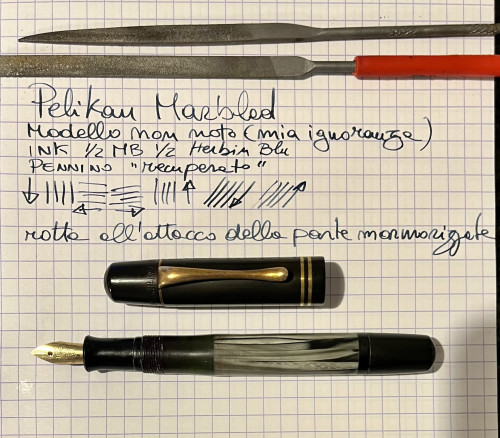 Pelikan Marbled
Modello non noto (mia ignoranza)
INK 1/2 MB 1/2 Herbin Blu
PENNINO "recuperato"
rotta all'attacco della parte marmorizzata